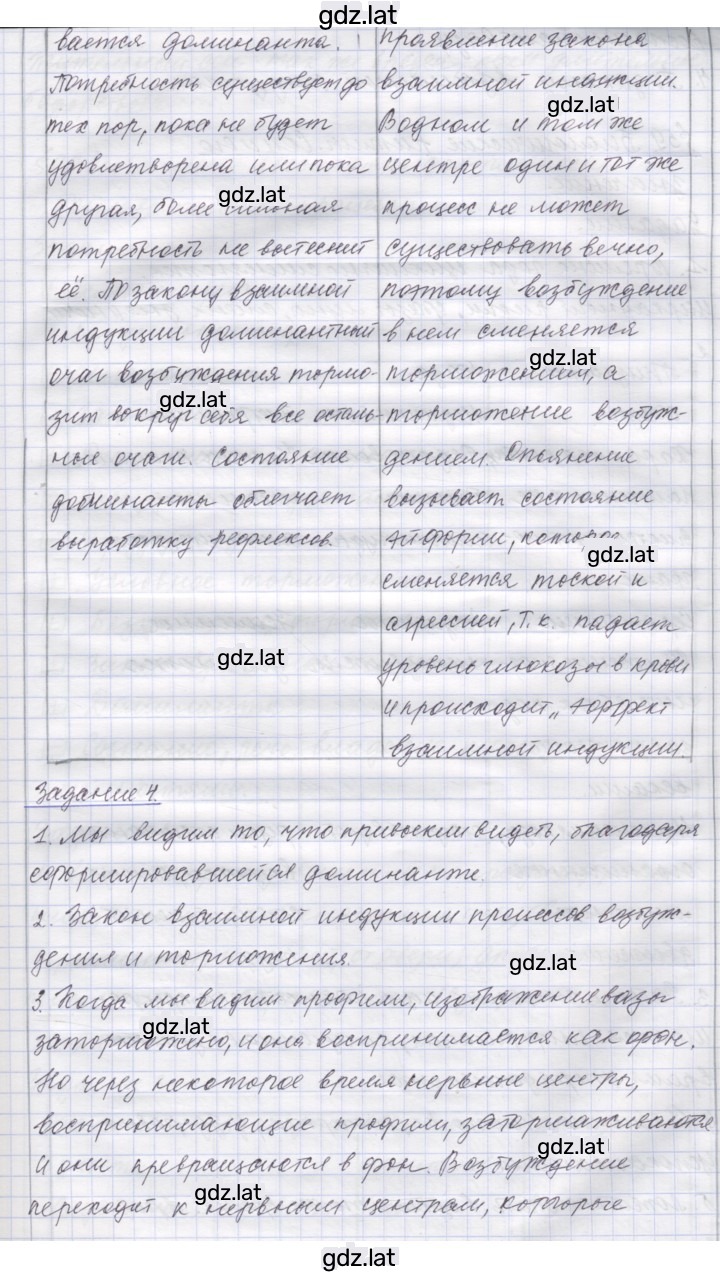 gdz.lat
вается доминанта.
Потребность существует до
тех пор, пока не будет
удовлетворена или пока
другая, более сильная
потребность не вытеснит
её. По закону взаимной
индукции доминантный
очаг возбуждения тормо-
зит вокруг себя все осталь-
ные очаги. Состояние
доминанты облегчает
выработку рефлексов.
проявление закона
взаимной индукции.
В одном и том же
центре один и тот же
процесс не может
существовать вечно,
поэтому возбуждение
в нем сменяется
торможением, а
торможение возбуж-
дением. Опьянение
вызывает состояние
эйфории,
сменяется тоской и
агрессией, т.к. падает
уровень глюкозы в крови
и происходит „эффект
взаимной индукции.
gdz.lat
gdz.lat
gdz.lat
gdz.lat
gdz.lat
gdz.lat
Задание 4.
1. Мы видим то, что привыкли видеть, благодаря
сформировавшейся доминанте.
2. Закон взаимной индукции процессов возбуж-
дения и торможения.
gdz.lat
3. Когда мы видим профили, изображение вазы
заторможено, и она воспринимается как фон.
gdz.lat
Но через некоторое время нервные центры,
воспринимающие профили, затормаживаются
и они превращаются в фон. Возбуждение
gdz.lat
переходит к нервным центрам, которые
gdz.lat
gdz.lat